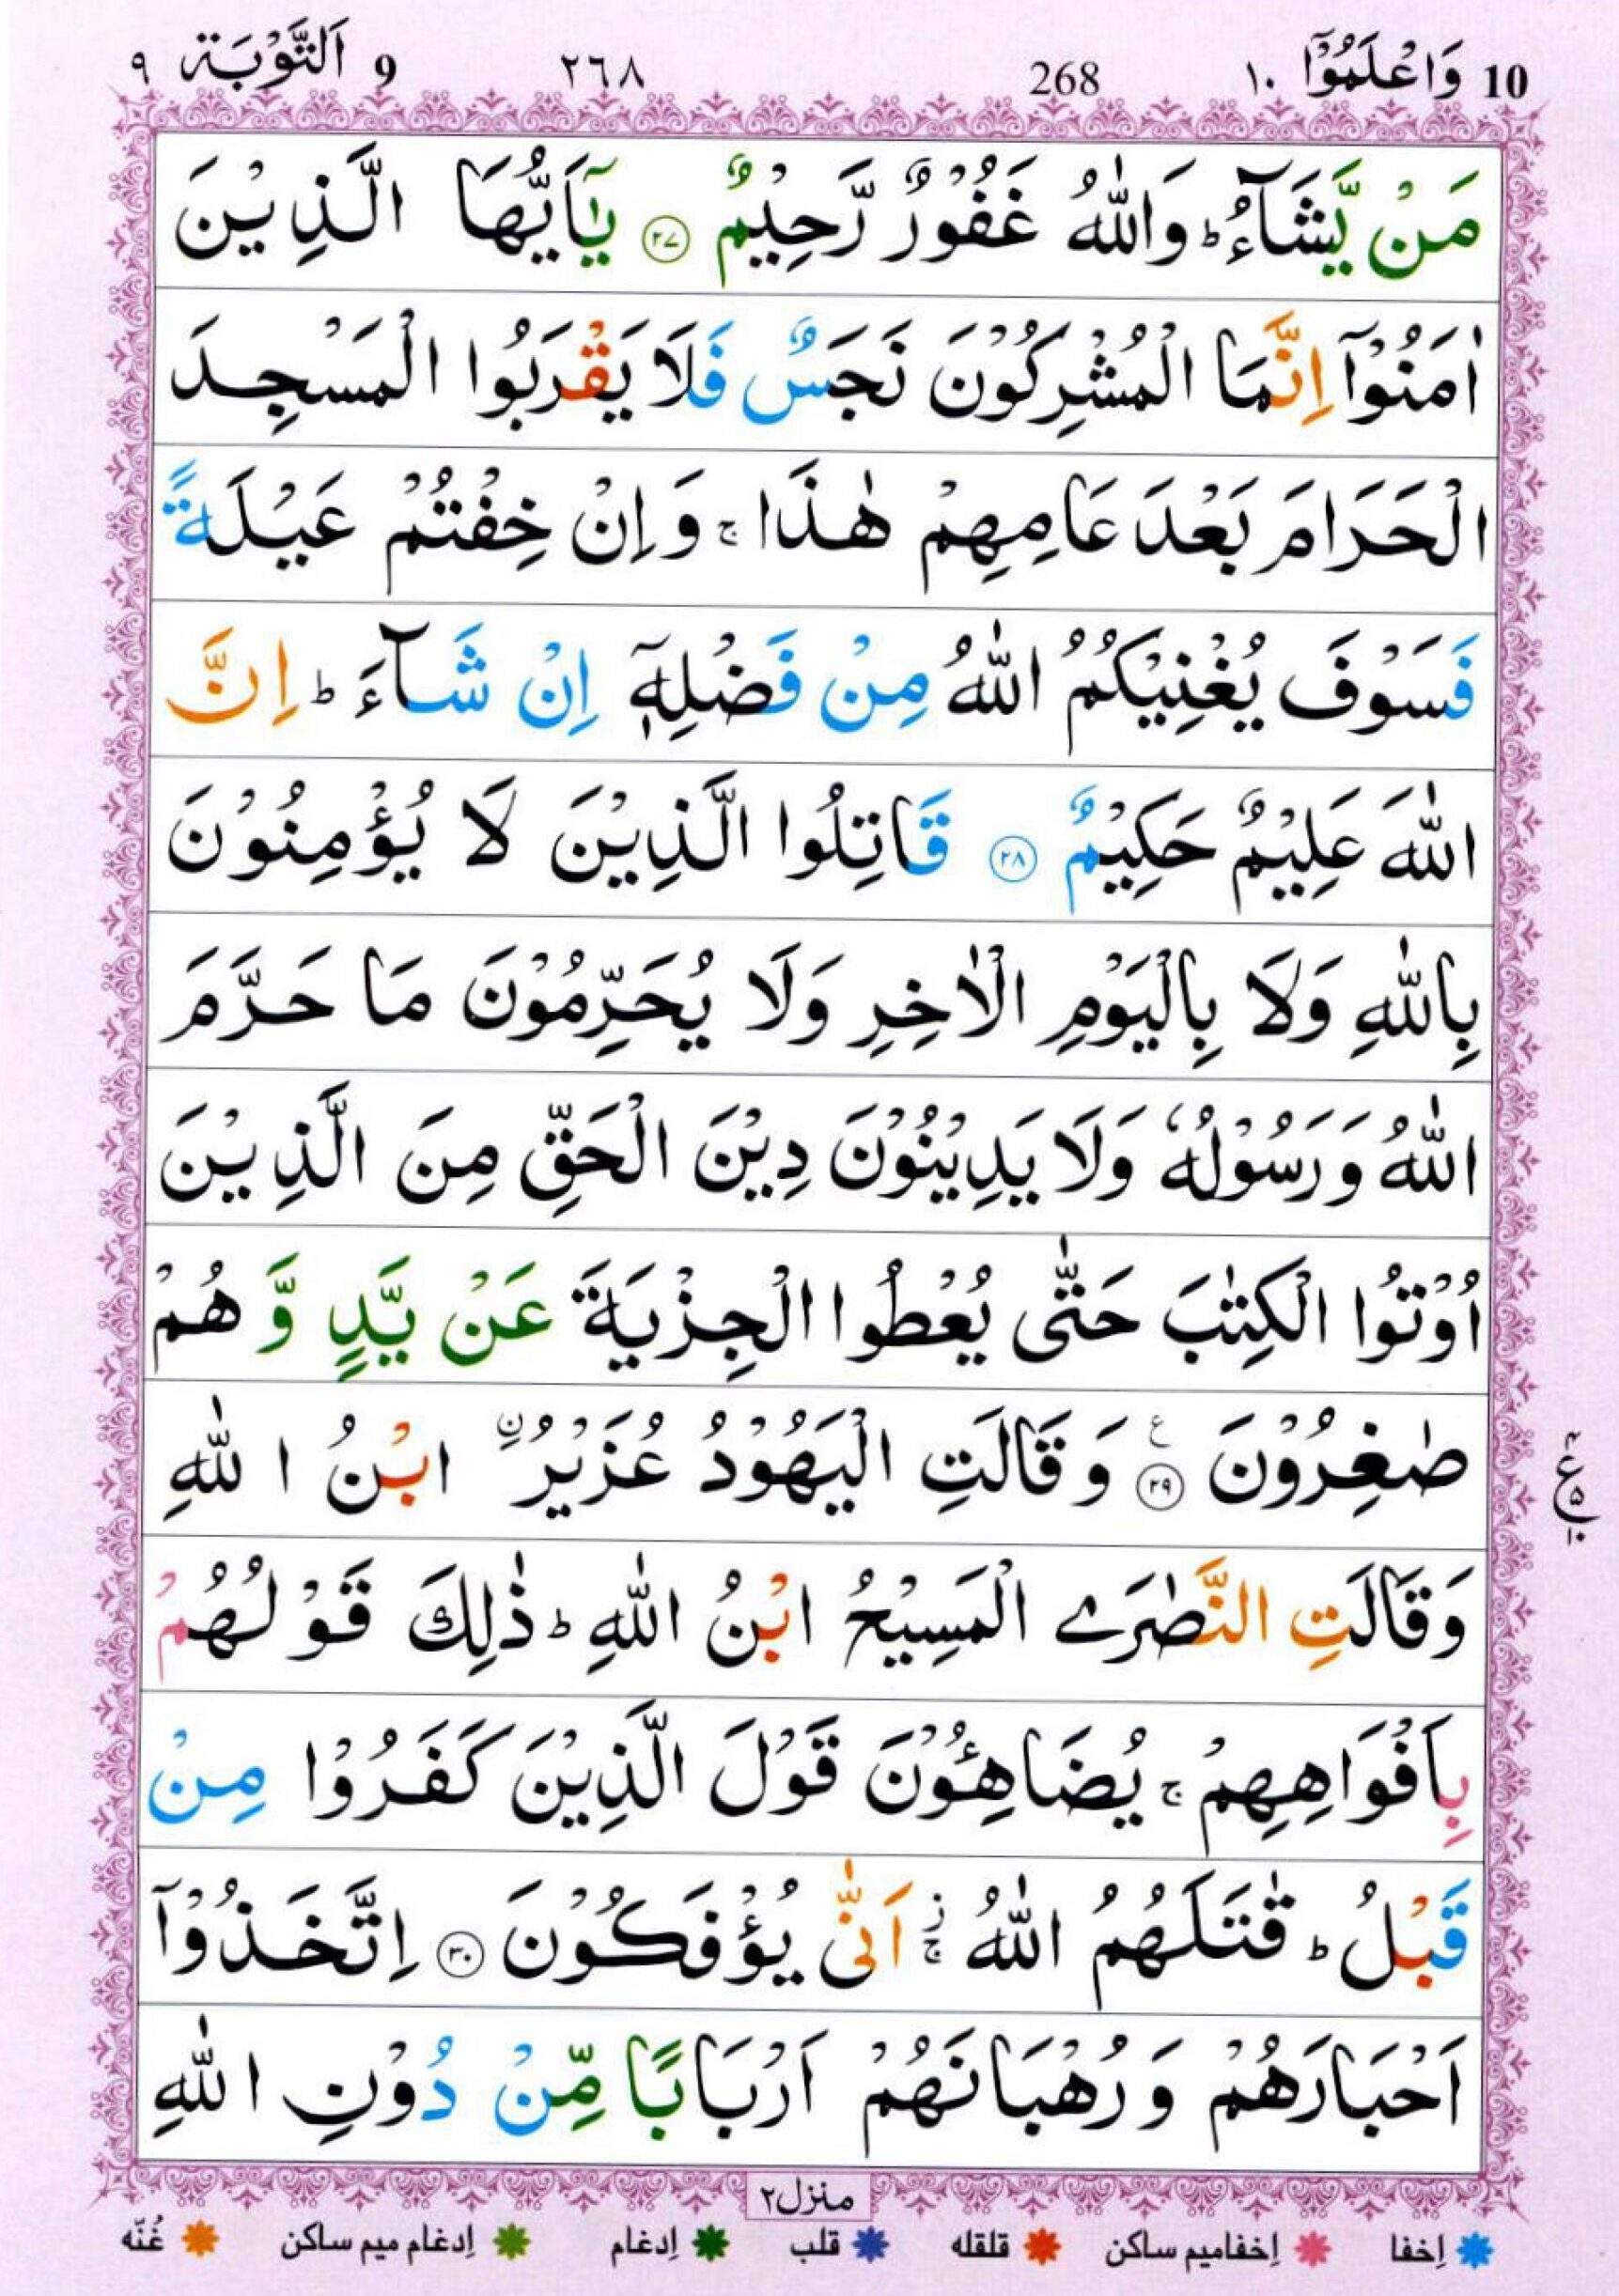 10 وَاعْلَمُوْۤا ١٠ 268 ٢٦٨ 9 اَلتَّوْبَة ٩
مَنْ يَّشَآءُ ؕ وَاللّٰهُ غَفُوْرٌ رَّحِيْمٌ ۝٢٧ يٰۤاَيُّهَا الَّذِيْنَ
اٰمَنُوْۤا اِنَّمَا الْمُشْرِكُوْنَ نَجَسٌ فَلَا يَقْرَبُوا الْمَسْجِدَ
الْحَرَامَ بَعْدَ عَامِهِمْ هٰذَا ۚ وَاِنْ خِفْتُمْ عَيْلَةً
فَسَوْفَ يُغْنِيْكُمُ اللّٰهُ مِنْ فَضْلِهٖۤ اِنْ شَآءَ ؕ اِنَّ
اللّٰهَ عَلِيْمٌ حَكِيْمٌ ۝٢٨ قَاتِلُوا الَّذِيْنَ لَا يُؤْمِنُوْنَ
بِاللّٰهِ وَلَا بِالْيَوْمِ الْاٰخِرِ وَلَا يُحَرِّمُوْنَ مَا حَرَّمَ
اللّٰهُ وَرَسُوْلُهٗ وَلَا يَدِيْنُوْنَ دِيْنَ الْحَقِّ مِنَ الَّذِيْنَ
اُوْتُوا الْكِتٰبَ حَتّٰى يُعْطُوا الْجِزْيَةَ عَنْ يَّدٍ وَّ هُمْ
صٰغِرُوْنَ ۝٢٩ ع وَ قَالَتِ الْيَهُوْدُ عُزَيْرُ اۨبْنُ اللّٰهِ
وَقَالَتِ النَّصٰرَے الْمَسِيْحُ ابْنُ اللّٰهِ ؕ ذٰلِكَ قَوْلُهُمْ
بِاَفْوَاهِهِمْ ۚ يُضَاهِـُٔوْنَ قَوْلَ الَّذِيْنَ كَفَرُوْا مِنْ
قَبْلُ ؕ قٰتَلَهُمُ اللّٰهُ ۚ ز اَنّٰى يُؤْفَكُوْنَ ۝٣٠ اِتَّخَذُوْۤا
اَحْبَارَهُمْ وَ رُهْبَانَهُمْ اَرْبَابًا مِّنْ دُوْنِ اللّٰهِ
منزل٢
إخفا إخفاميم ساكن قلقله قلب إدغام إدغام ميم ساكن غُنّه